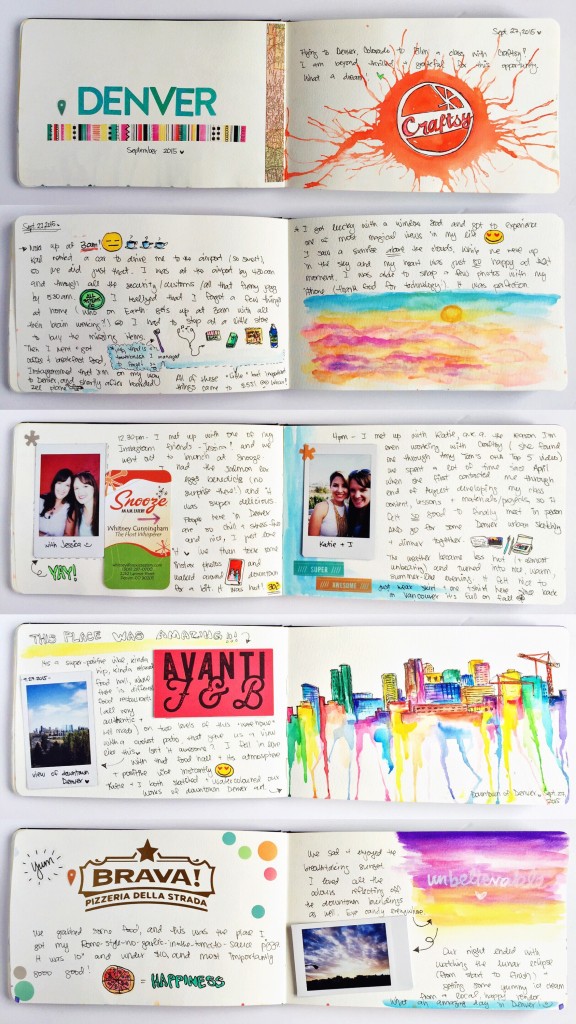 DENVER
September 2015
Sept. 27, 2015
Flying to Denver, Colorado to film a class with Craftsy!
I am beyond thrilled + grateful for this opportunity.
What a dream!
Craftsy
Sept 27, 2015
up at 3am!
rented a car to drive me to the airport (so sweet!)
so we did just that. I was at the airport by 4:30am
and through all the security/customs/all that funny jazz
by 5:30am. I realized that I forgot a few things
at home (who on Earth gets up at 3am with all
their brain working?) so I had to stop at a little store
to buy the missing items.
Then I went + got
coffee + breakfast food.
Instagrammed that I'm on my way
to Denver, and shortly after boarded
All of these "little" but important
things came to
I got lucky with a window seat and got to experience
one of most magical views in my life
I saw a sunrise above the clouds. While we were up
in the sky and my heart was just so happy at that
moment, I was able to snap a few photos with my
iPhone (thank God for technology). It was perfection.
12:30pm - I met up with one of my
Instagram friends - Jessica! and we
went out brunch at Snooze
I had the Salmon
eggs benedict (no
surprise there!) and it
was super delicious.
People here in Denver
are so chill + stress-free
and nice, I just love
it. We then took some
instax photos
and
walked around downtown
for a bit. It was hot!
with Jessica
YAY!
Snooze
an A.M. eatery
Whitney Cunningham
The Host Whisperer
4pm - I met up with Katie, one of the reason I'm
even working with Craftsy (she found
me through Amy Tan's and Top 5 video)
We spent a lot of time since April
when she first contacted me through
end of August developing my class
content, lessons + materials/projects. So it
felt so good to finally meet in person
and go for some Denver urban sketching
+ dinner together.
The weather became less hot (+ almost
unbearing) and turned into nice, warm,
summer-like evening. It felt nice to
just wear skirt + one tshirt here since back
in Vancouver it's full on fall
Katie + I
SUPER
AWESOME
THIS PLACE WAS AMAZING!!!
It's a super-positive vibe, kinda
hip, kinda
food hall, where
there is different
food restaurants
(all very
authentic +
well made) on two levels of this "warehouse"
with a rooftop patio that gave us a view
like this. Isn't it awesome? I fell in love
with that food hall + its atmosphere
+ positive vibe instantly
Katie + I both sketched + watercoloured our
works of downtown Denver art.
AVANTI
F & B
view of downtown
Denver
Downtown of Denver, Sept. 27,
2015
Yum
BRAVA!
PIZZERIA DELLA STRADA
We gathered some food, and this was the place I
got my Rome-style-no-garlic-in-the-tomato-sauce pizza
It was 10" and under $10, and most importantly
sooo good!
= HAPPINESS
We sat + enjoyed the
breathtaking sunset.
I loved all the
colours reflecting off
the downtown buildings
as well. Eye candy everywhere
unbelievable
Our night ended with
watching the lunar eclipse
(from start to finish) +
getting some yummy ice cream
from a local, happy vendor
What an amazing day in Denver!